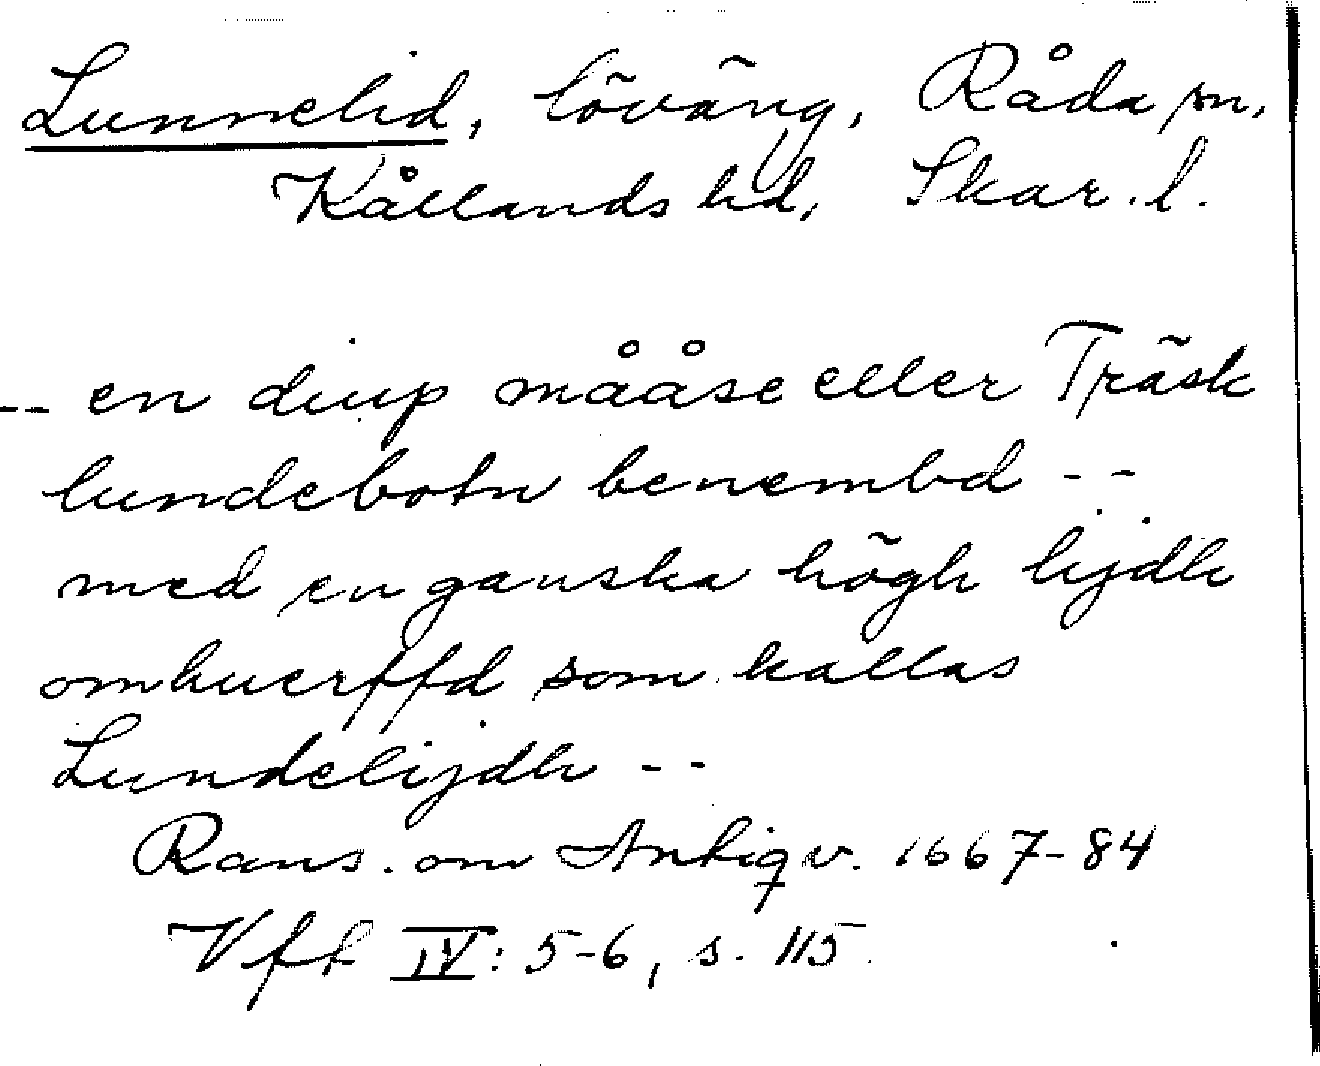 Lunnelid, löväng, Råda sn,
Kållands hd, Skar. l.
-- en diup mååse eller Träsk
lundebotn benembd --
med en ganska högh lijdh
omhuerffd som kallas
Lundelijdh --
Rans. om Antiqv. 1667-84
Vft IV: 5-6, s. 115